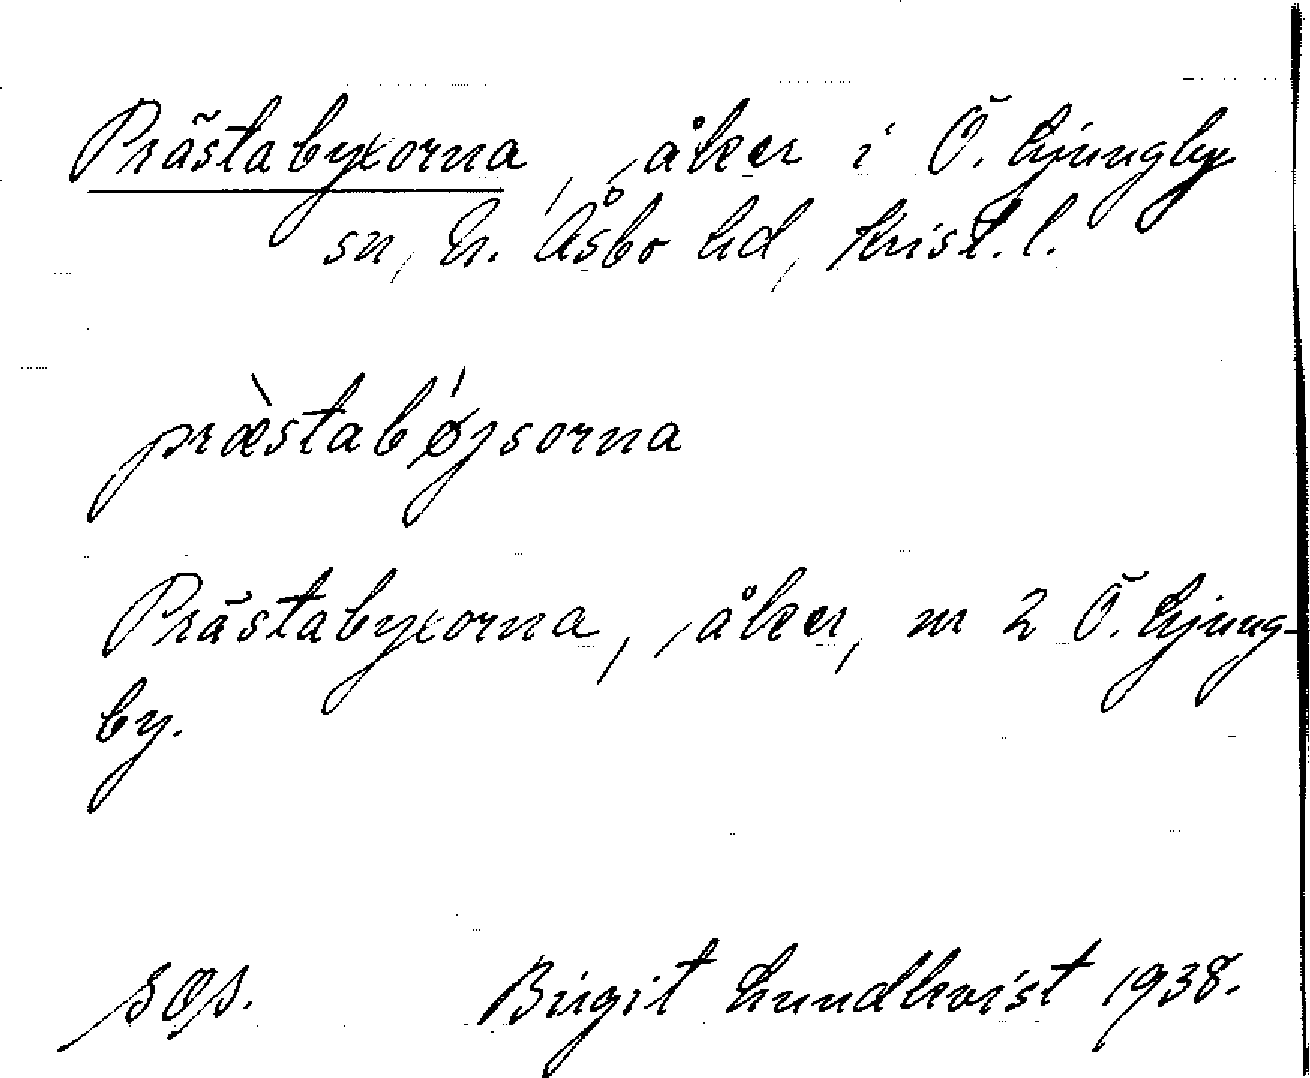 Prästabyxorna, åker i Ö. Ljungby
sn, N. Åsbo hd, Krist. l.
præ̀stabǿjsorna
Prästabyxorna, åker, nr 2 Ö. Ljung-
by.
Birgit Lundkvist 1938.